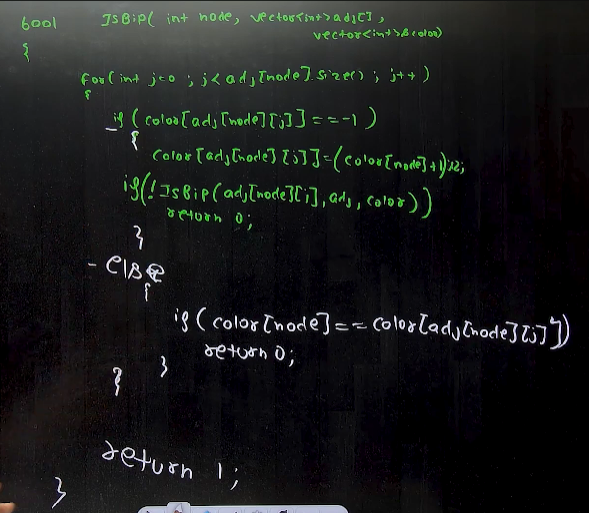 bool IsBip( int node, vector<int>adj[],
vector<int>&color)
{
for(int j=0 ; j<adj[node].size() ; j++)
{
if (color[adj[node][j]]==-1)
{
color[adj[node][j]]=(color[node]+1)%2;
if(!IsBip(adj[node][j],adj,color))
return 0;
}
else
{
if (color[node]==color[adj[node][j]])
return 0;
}
}
return 1;
}